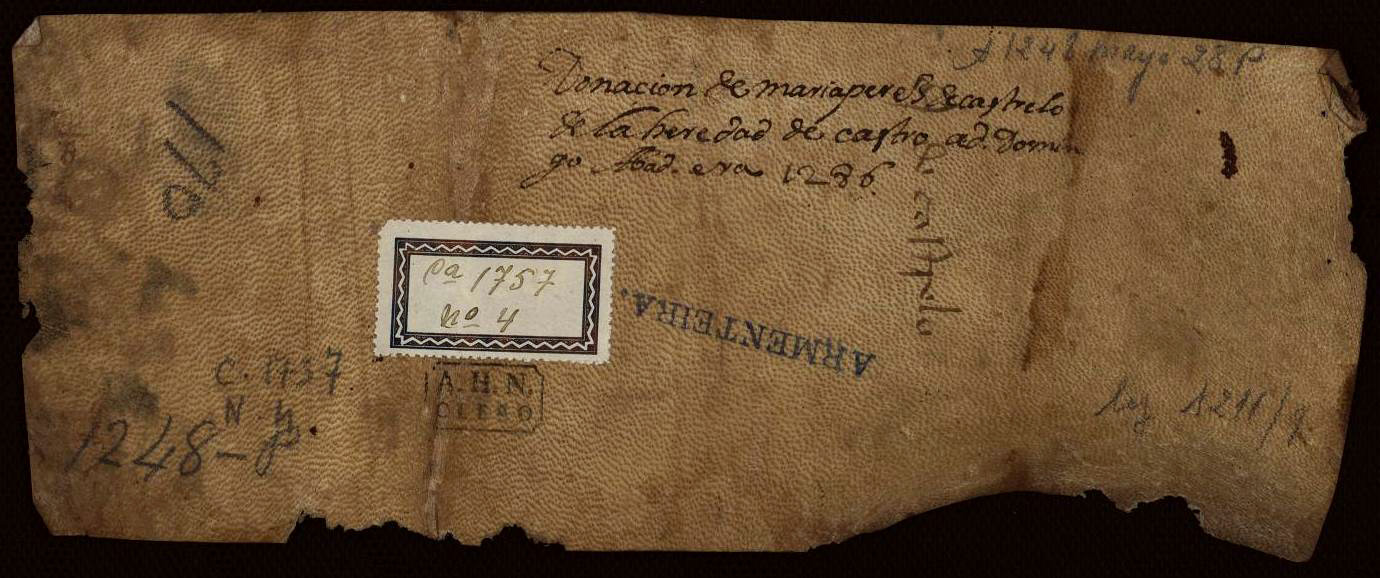 1248 mayo 28 P
Donacion de maria perez de castrelo
de la heredad de castro, a d. Domin
go Abad. era 1286.
Castrelo
Ca 1757
no 4
ARMENTEIRA.
C. 1757
N. 4
A.H.N.
CLERO
1248-P
leg 1211/2